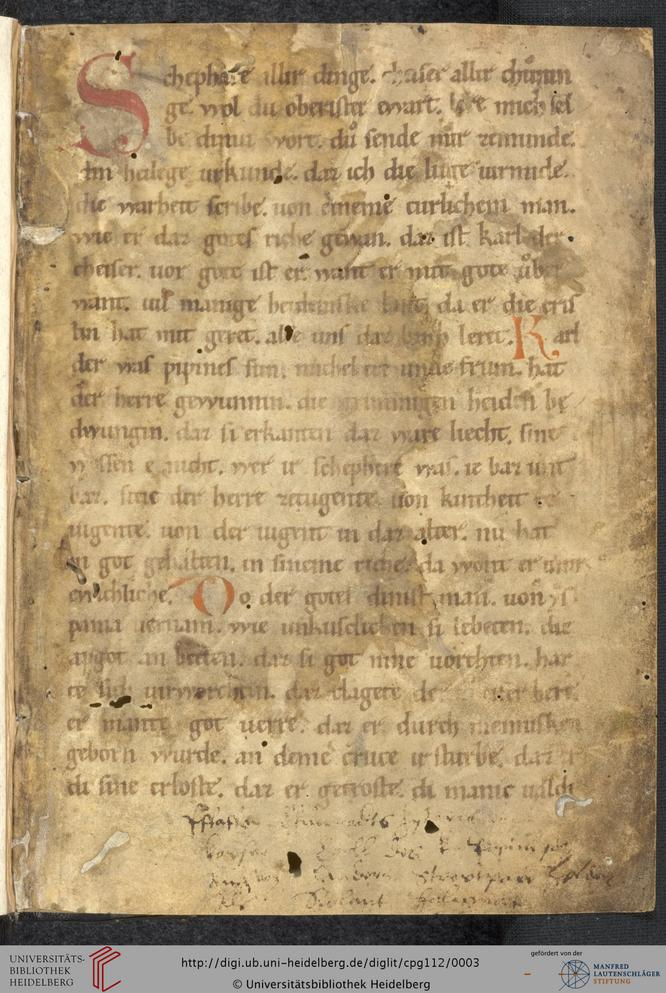 Schephare aller dinge. cheiser aller chuninn
ge. wol du oberister ewart. lere mich sel
be diniu wort. du sende mir ze munde.
din heilege urkunde. daz ich die luge uirmide.
die warheit scribe. uon eineme turlichem man.
wie er daz gotes riche gewan. daz ist karl der
cheiser. uor gote ist er. want er mit gote uber
want. uil manige heideniske lant. da er die cris
tin hat mit geret. alse uns daz buch leret. Karl
der was pipines sun. michel ere unde frum. hat
der herre gewunnin. die grimmigen heiden be
dwungin. daz si erkanten daz ware liecht. sine
wessen e nicht. wer ir schephere was. ie baz unt
baz. steic der herre ze tugente. uon kintheit ze
iugente. uon der iugent in daz alter. nu hat
in got gehalten. in sineme riche. da wont er imir
ewichliche. Do der gotes dinist man. uon ys
pania uernam. wie unkusclichen si lebeten. die
apgot an beteten. daz si got nine uorchten. har
te sich uirworchten. daz clagete der cheiser here.
er mante got uerre. daz er durch mennisken
geborn wurde. an deme cruce irsturbe. daz er
di sine erloste. daz er getroste. di manic ualdi
UNIVERSITÄTS-
BIBLIOTHEK
HEIDELBERG
http://digi.ub.uni-heidelberg.de/diglit/cpg112/0003
© Universitätsbibliothek Heidelberg
gefördert von der
MANFRED
LAUTENSCHLÄGER
STIFTUNG